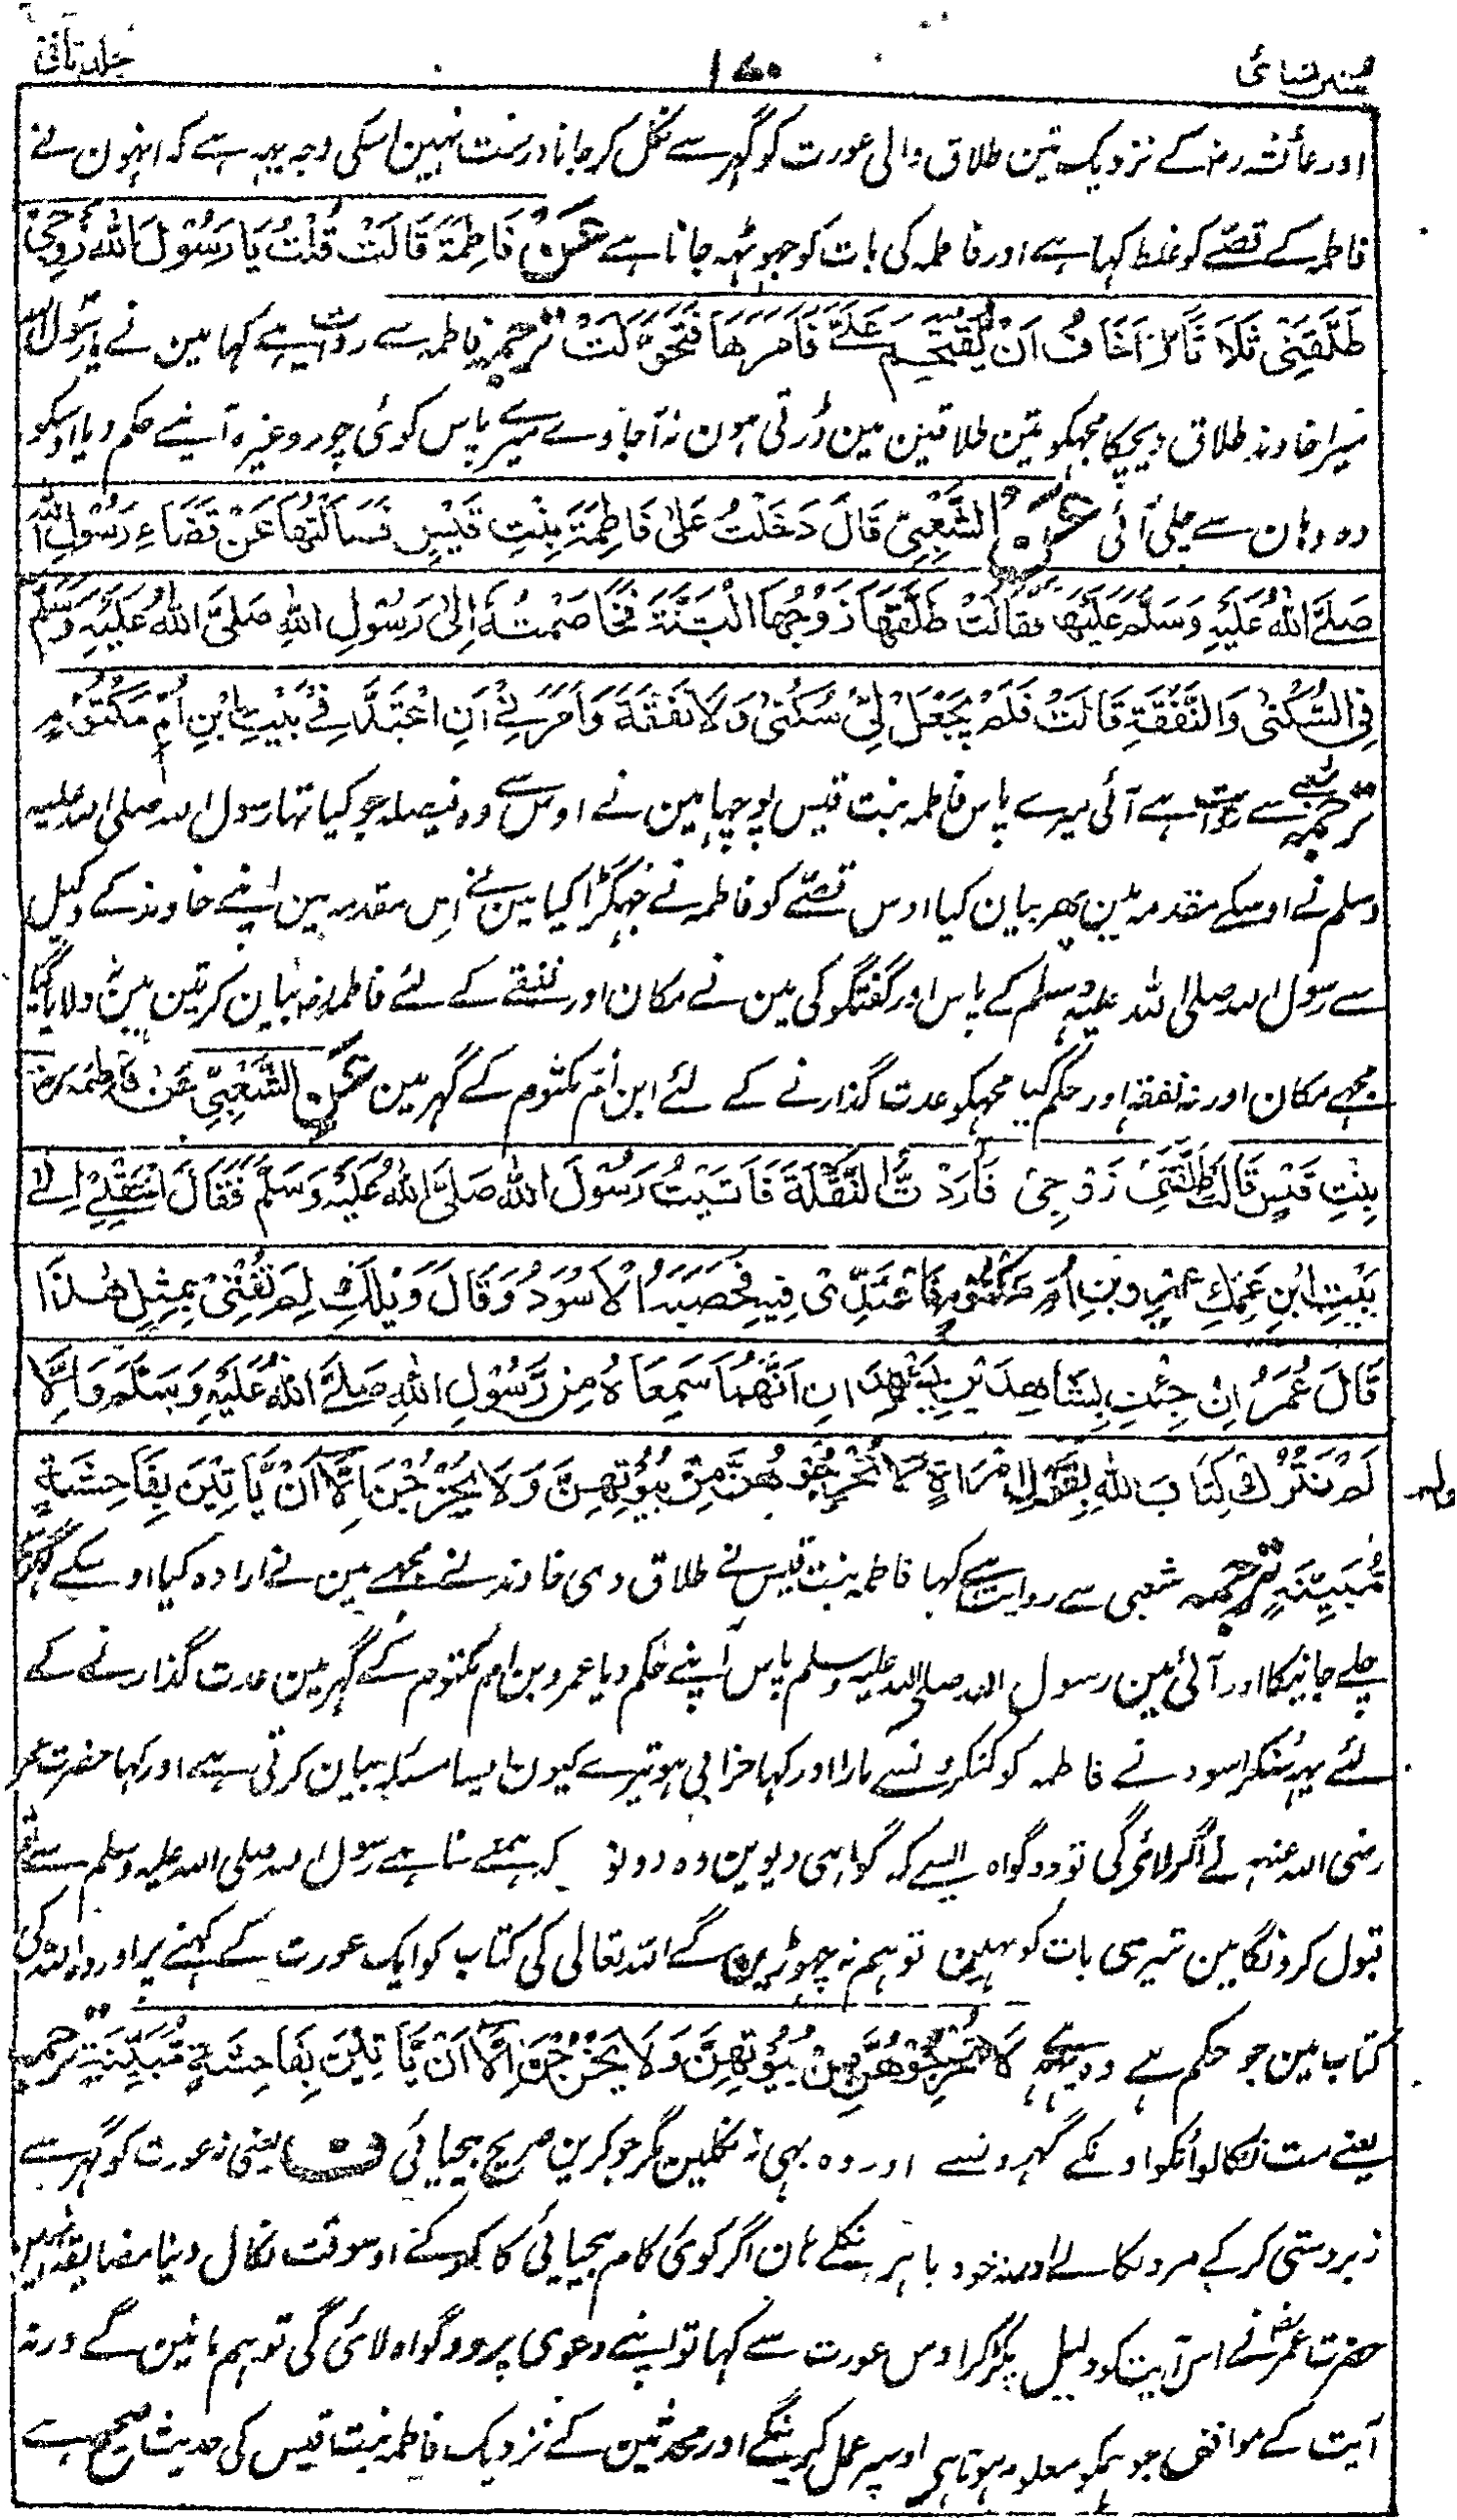 سنن نسائی ۱۷۰ جلد ثانی
اور عائشہ رضہ کے نزدیک تین طلاق والی عورت کو گہر سے نکل کر جانا درست نہین اسکی وجہ یہہ ہے کہ انہون نے
فاطمہ کے قصّے کو غلط کہا ہے اور فاطمہ کی بات کو جہوٹہہ جانا ہے عَنْ فَاطِمَةَ قَالَتْ قُلْتُ يَا رَسُوْلَ اللهِ زَوْجِيْ
طَلَّقَنِيْ ثَلَاثًا وَاَخَافُ اَنْ يُّقْتَحَمَ عَلَيَّ فَاَمَرَهَا فَتَحَوَّلَتْ ترجمہ فاطمہ سے روایت ہے کہا مین نے یا رسول اللہ
میرا خاوند طلاق دیچکا مجہکو تین طلاقین مین ڈرتی ہون نہ آجاوے میرے پاس کوئی چور وغیرہ آپنے حکم دیا اوسکو
وہ وہان سے چلی آئی عَنِ الشَّعْبِيِّ قَالَ دَخَلْتُ عَلٰى فَاطِمَةَ بِنْتِ قَيْسٍ فَسَاَلْتُهَا عَنْ قَضَاءِ رَسُوْلِ اللهِ
صَلَّى اللهُ عَلَيْهِ وَسَلَّمَ عَلَيْهَا فَقَالَتْ طَلَّقَهَا زَوْجُهَا الْبَتَّةَ فَخَاصَمْتُهُ اِلٰى رَسُوْلِ اللهِ صَلَّى اللهُ عَلَيْهِ وَسَلَّمَ
فِي السُّكْنٰى وَالنَّفَقَةِ قَالَتْ فَلَمْ يَجْعَلْ لِيْ سُكْنٰى وَلَا نَفَقَةً وَاَمَرَنِيْ اَنْ اَعْتَدَّ فِيْ بَيْتِ ابْنِ اُمِّ مَكْتُوْمٍ
ترجمہ شعبی سے روایت ہے آئی میرے پاس فاطمہ بنت قیس پوچہا مین نے اوس سے وہ فیصلہ جو کیا تہا رسول اللہ صلی اللہ علیہ
وسلم نے اوسکے مقدمہ مین پھر بیان کیا اوس قصّے کو فاطمہ نے جہگڑا کیا مین نے اس مقدمہ مین اپنے خاوند کے وکیل
سے رسول اللہ صلی اللہ علیہ وسلم کے پاس اور گفتگو کی مین نے مکان اور نفقے کے لئے فاطمہ رضہ بیان کرتین ہین نہ دلایا گیا
مجہے مکان اور نہ نفقہ اور حکم کیا مجہکو عدت گذارنے کے لئے ابن اُم مکتوم کے گہر مین عَنِ الشَّعْبِيِّ عَنْ فَاطِمَةَ رضہ
بِنْتِ قَيْسٍ قَالَتْ طَلَّقَنِيْ زَوْجِيْ فَاَرَدْتُّ النُّقْلَةَ فَاَتَيْتُ رَسُوْلَ اللهِ صَلَّى اللهُ عَلَيْهِ وَسَلَّمَ فَقَالَ انْتَقِلِيْ اِلٰى
بَيْتِ ابْنِ عَمِّكِ عَمْرِو بْنِ اُمِّ مَكْتُوْمٍ فَاعْتَدِّيْ فِيْهِ فَحَصَبَهُ الْاَسْوَدُ وَقَالَ وَيْلَكَ لِمَ تُفْتِيْ بِمِثْلِ هٰذَا
قَالَ عُمَرُ اِنْ جِئْتِ بِشَاهِدَيْنِ يَشْهَدَانِ اَنَّهُمَا سَمِعَاهُ مِنْ رَّسُوْلِ اللهِ صَلَّى اللهُ عَلَيْهِ وَسَلَّمَ وَاِلَّا
لَمْ نَتْرُكْ كِتَابَ اللهِ بِقَوْلِ امْرَاَةٍ لَا تُخْرِجُوْهُنَّ مِنْ بُيُوْتِهِنَّ وَلَا يَخْرُجْنَ اِلَّا اَنْ يَّاْتِيْنَ بِفَاحِشَةٍ
مُّبَيِّنَةٍ ترجمہ شعبی سے روایت ہے کہا فاطمہ بنت قیس نے طلاق دی خاوند نے مجہے مین نے ارادہ کیا اوسکے گہر سے
چلے جانیکا اور آئی مین رسول اللہ صلی اللہ علیہ وسلم پاس آپنے حکم دیا عمرو بن ام مکتوم کے گہر مین عدت گذارنے کے
لئے یہہ سنکر اسود نے فاطمہ کو کنکرونسے مارا اور کہا خرابی ہو تیرے کیون ایسا مسئلہ بیان کرتی ہے اور کہا حضرت عمر
رضی اللہ عنہہ نے اگر لائیگی تو دو گواہ ایسے کہ گواہی دیوین وہ دونو کہ ہمنے سنا ہے رسول اللہ صلی اللہ علیہ وسلم سے تو
قبول کرونگا مین تیری بات کو نہین تو ہم نہ چہوڑین گے اللہ تعالی کی کتاب کو ایک عورت کے کہنے پر اور اللہ کی
کتاب مین جو حکم ہے وہ یہہ ہے لَا تُخْرِجُوْهُنَّ مِنْ بُيُوْتِهِنَّ وَلَا يَخْرُجْنَ اِلَّا اَنْ يَّاْتِيْنَ بِفَاحِشَةٍ مُّبَيِّنَةٍ ترجمہ
یعنے مت نکالو اُنکو اونکے گہرونسے اور وہ بہی نہ نکلین مگر جو کرین صریح بیحیائی ف یعنی نہ عورت کو گہر سے
زبردستی کر کے مرد نکالے اور نہ خود باہر نکلے ہان اگر کوئی کام بیحیائی کا کرے اوسوقت نکال دینا مضایقہ نہین
حضرت عمر رضہ نے اس آیت کو دلیل پکڑ کر اوس عورت سے کہا تو اپنے دعوی پر دو گواہ لائیگی تو ہم مانین گے ورنہ
آیت کے موافق جو ہمکو معلوم ہوتا ہی اوسپر عمل کرینگے اور محدثین کے نزدیک فاطمہ بنت قیس کی حدیث صحیح ہے